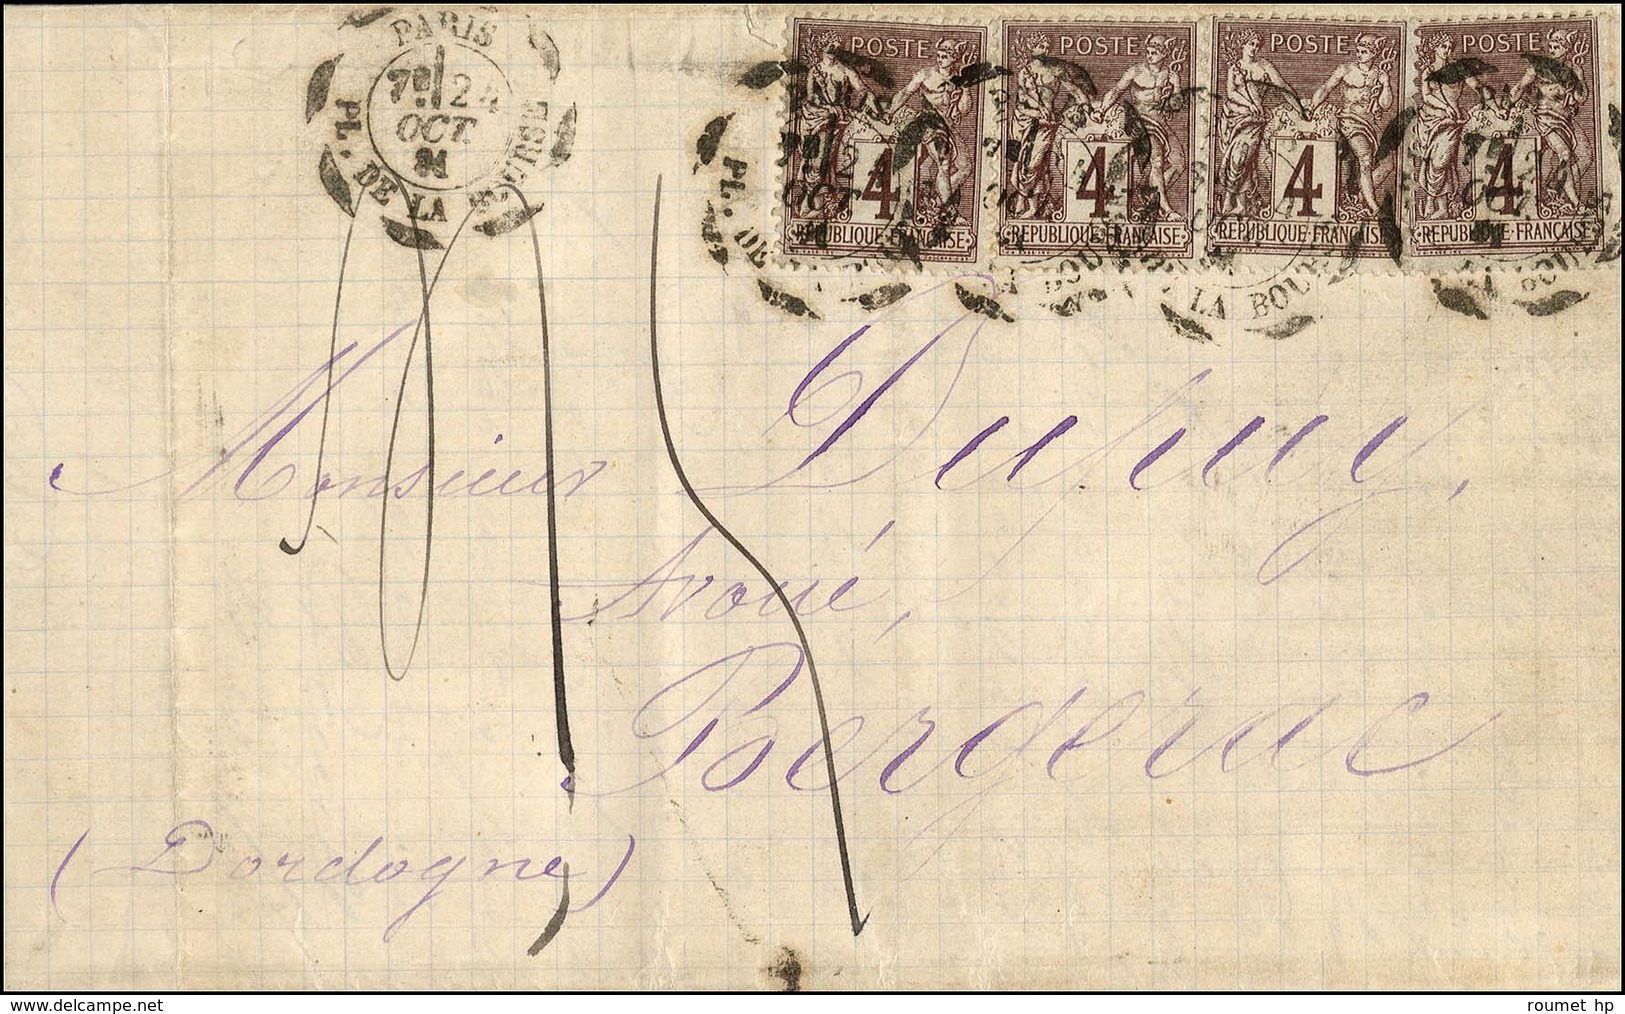 PARIS
7E 24
OCT
81
PL. DE LA BOURSE
POSTE POSTE POSTE POSTE
4 4 4 4
REPUBLIQUE·FRANÇAISE REPUBLIQUE·FRANÇAISE REPUBLIQUE·FRANÇAISE REPUBLIQUE·FRANÇAISE
Monsieur Dupuy,
Avoué,
Bergerac
(Dordogne)
www.delcampe.net
roumet hp